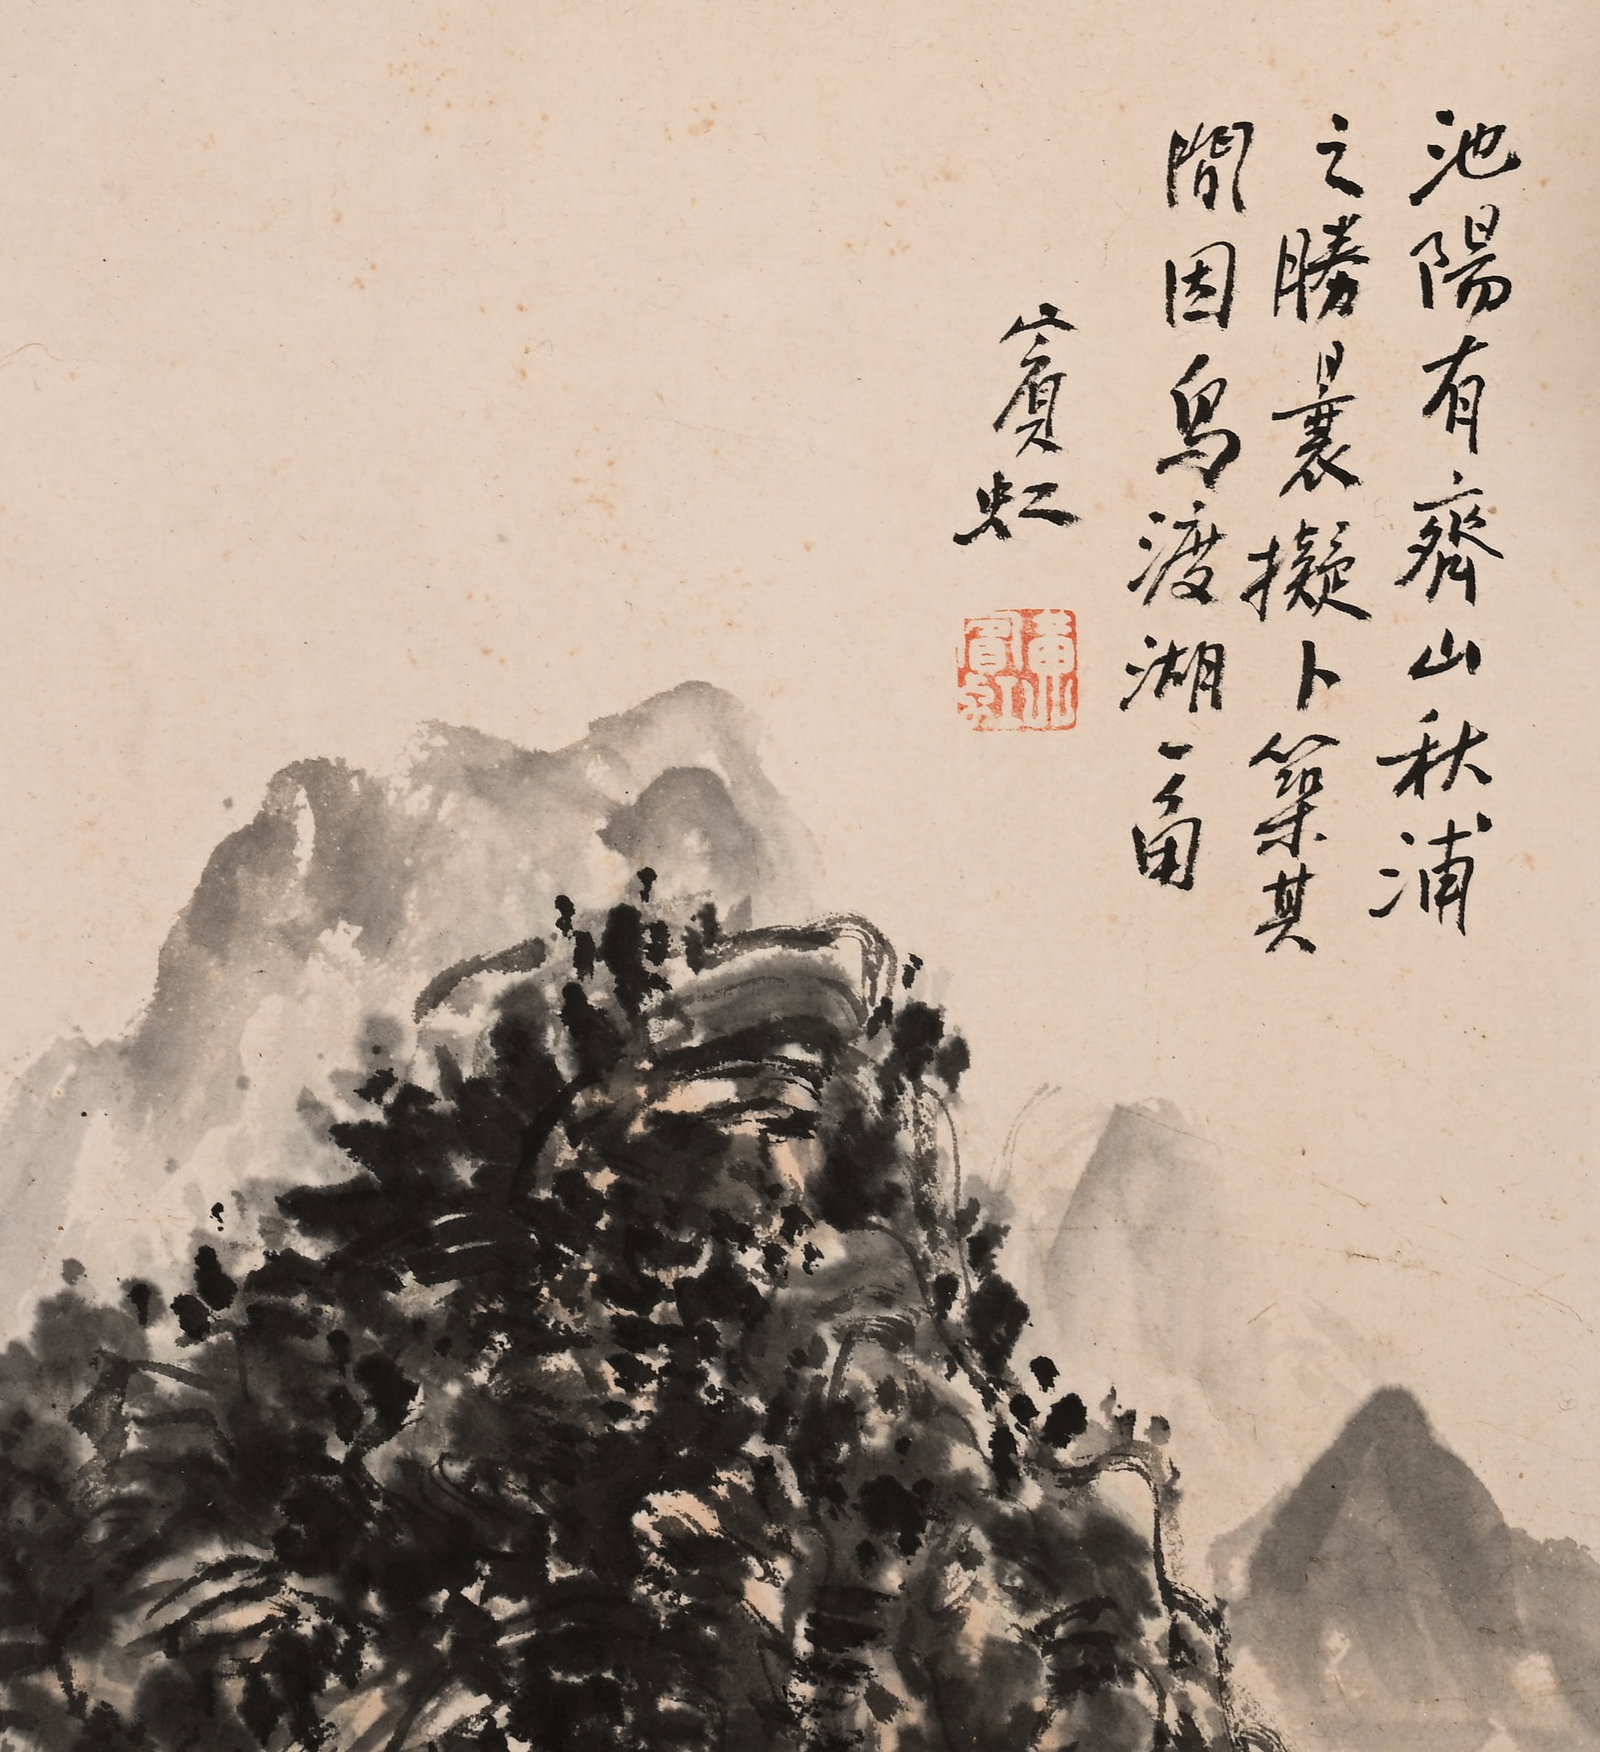 池陽有齊山秋浦
之勝曩擬卜築其
間因烏渡湖一角
賓虹
黃賓虹